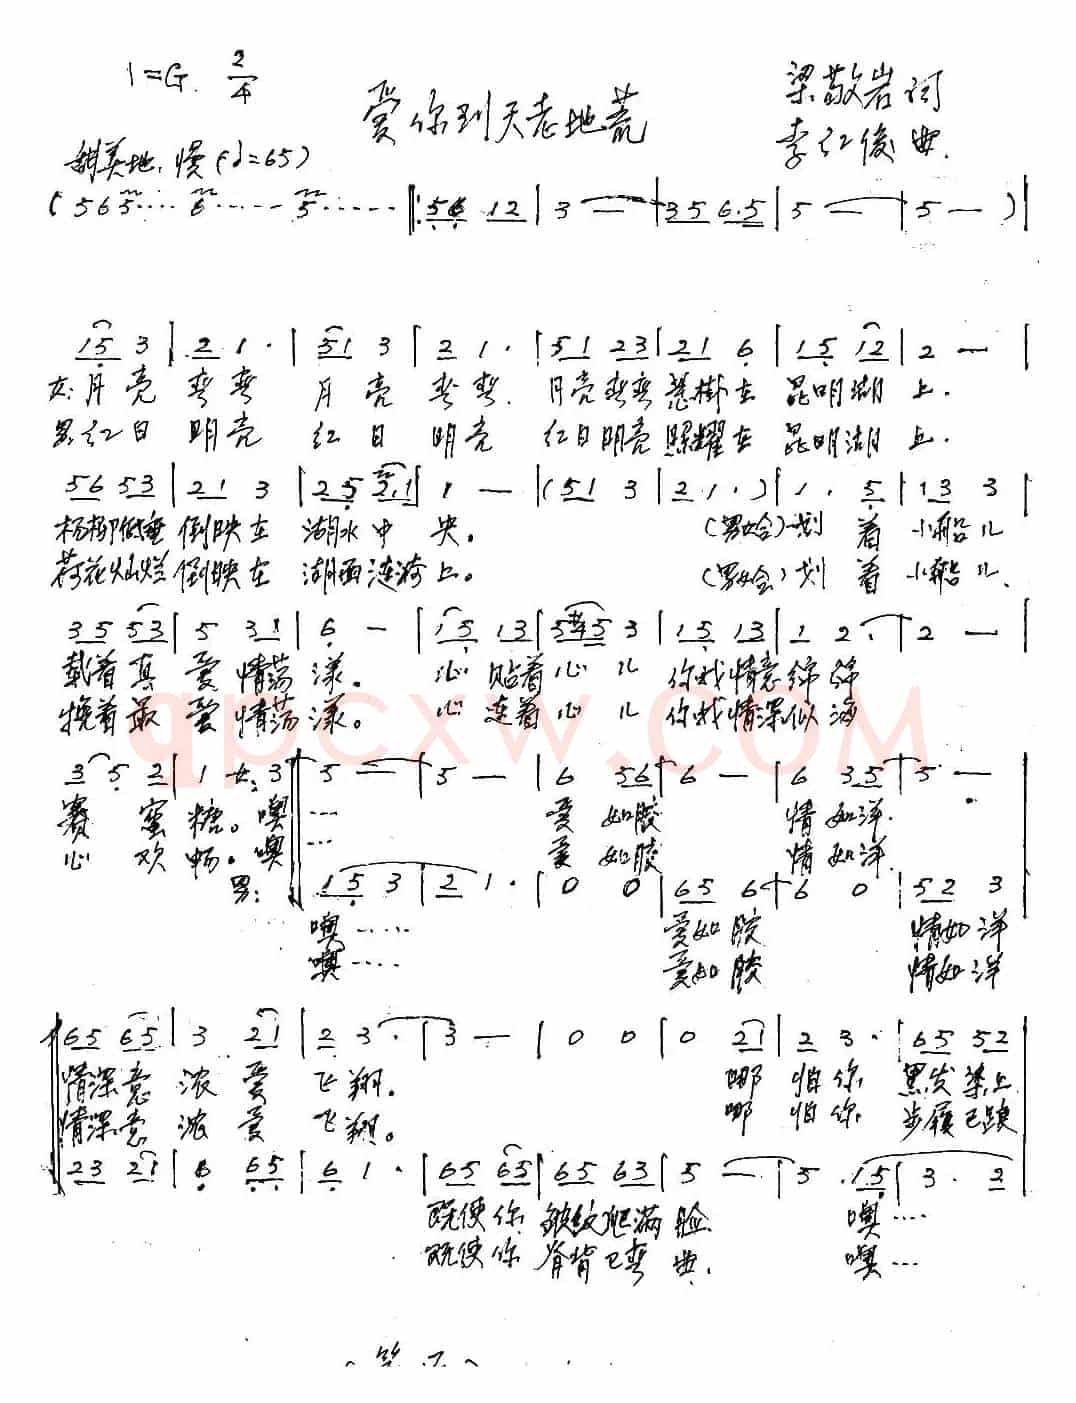 1=G 2/4
爱你到天老地荒
梁敬岩词
李红俊曲.
甜美地.慢(♩=65)
(565.... 6..... 5......|:56 12|3 —|35 6.5|5 —|5 —)|
15 3|2 1.|51 3|2 1.|51 23|21 6|15 12|2 —|
女:月亮 弯弯 月亮 弯弯. 月亮弯弯悬掛在 昆明湖上.
男:红日 明亮 红日 明亮 红日明亮照耀在 昆明湖上.
56 53|21 3|25 2.1|1 —|(51 3|2 1.)|1. 5|13 3
杨柳低垂倒映在 湖水中央。 (男女合)划着小船儿
荷花灿烂倒映在 湖面涟漪上。 (男女合)划着小船儿.
35 53|5 31|6 —|15 13|5#45 3|15 13|1 2.|2 —|
载着真爱情荡漾。 心贴着心儿 你我情意绵绵
挽着最爱情荡漾。 心连着心儿 你我情深似海
qpcxw.com
3 5 2|1 女:3|5 —|5 —|6 56|6 —|6 35|5 —
赛蜜糖。噢 ... 爱如胶 情如洋.
心欢畅。噢 ... 爱如胶 情如洋.
男: 15 3|2 1.|0 0|65 6|6 0|52 3
噢..... 爱如胶 情如洋
噢.... 爱如胶 情如洋
65 65|3 21|2 3.|3 —|0 0|0 21|2 3.|65 52
情深意浓爱飞翔. 哪怕你 黑发染上
情深意浓爱飞翔。 哪怕你 步履已踉
23 21|6 65|6 1.|65 65|65 63|5 —|5 .15|3. 2
既使你 皱纹爬满脸. 噢....
既使你 脊背已弯曲. 噢...